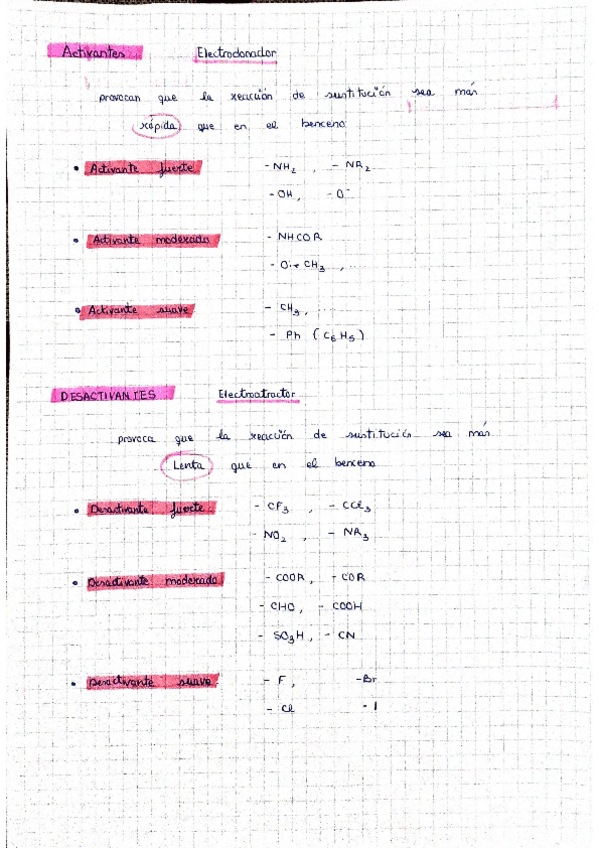 Activantes Electrodonador
provocan que la reacción de sustitución sea más
rápida que en el benceno
• Activante fuerte - NH2 , - NR2
- OH, - O-
• Activante moderado - NHCOR
- CH3 , ...
• Activante suave - CH3, ...
- Ph (C6H5)
DESACTIVANTES Electroatractor
provoca que la reacción de sustitución sea más
Lenta que en el benceno
• Desactivante fuerte - CF3 , - CCl3
- NO2 , - NR3
• Desactivante moderado - COOR, - COR
- CHO, - COOH
- SO3H, - CN
• Desactivante suave - F, -Br
- Cl - I